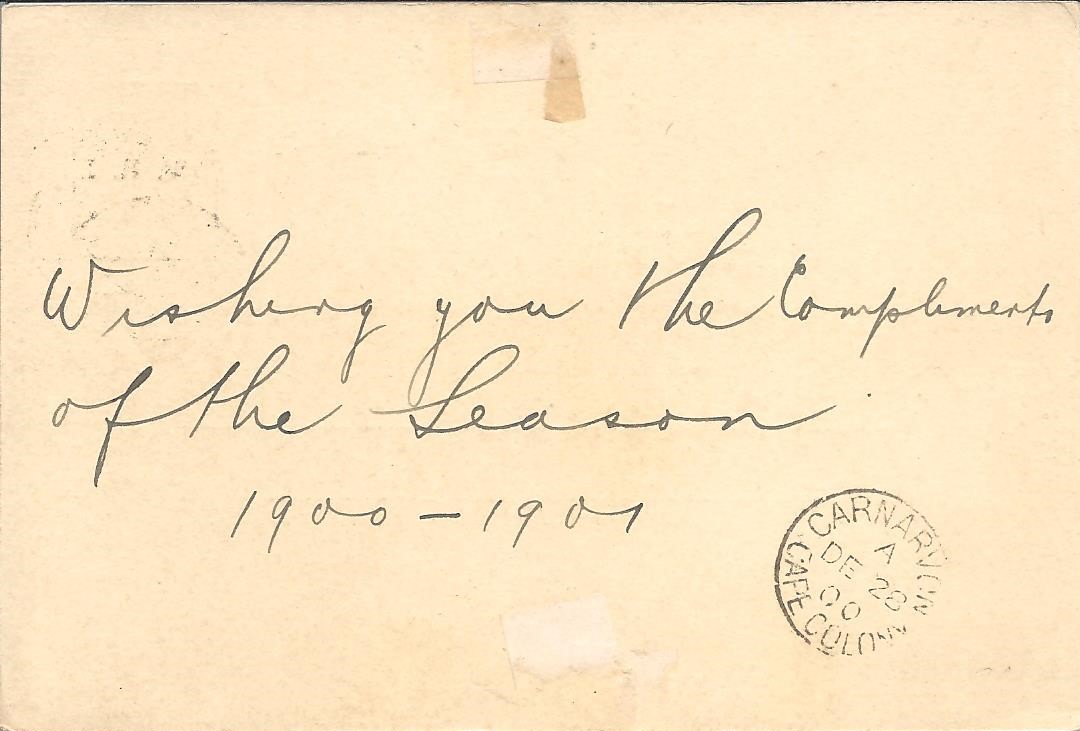 Wishing you the Compliments
of the Season
1900 – 1901
CARNARVON
A
DE 28
00
CAPE COLONY